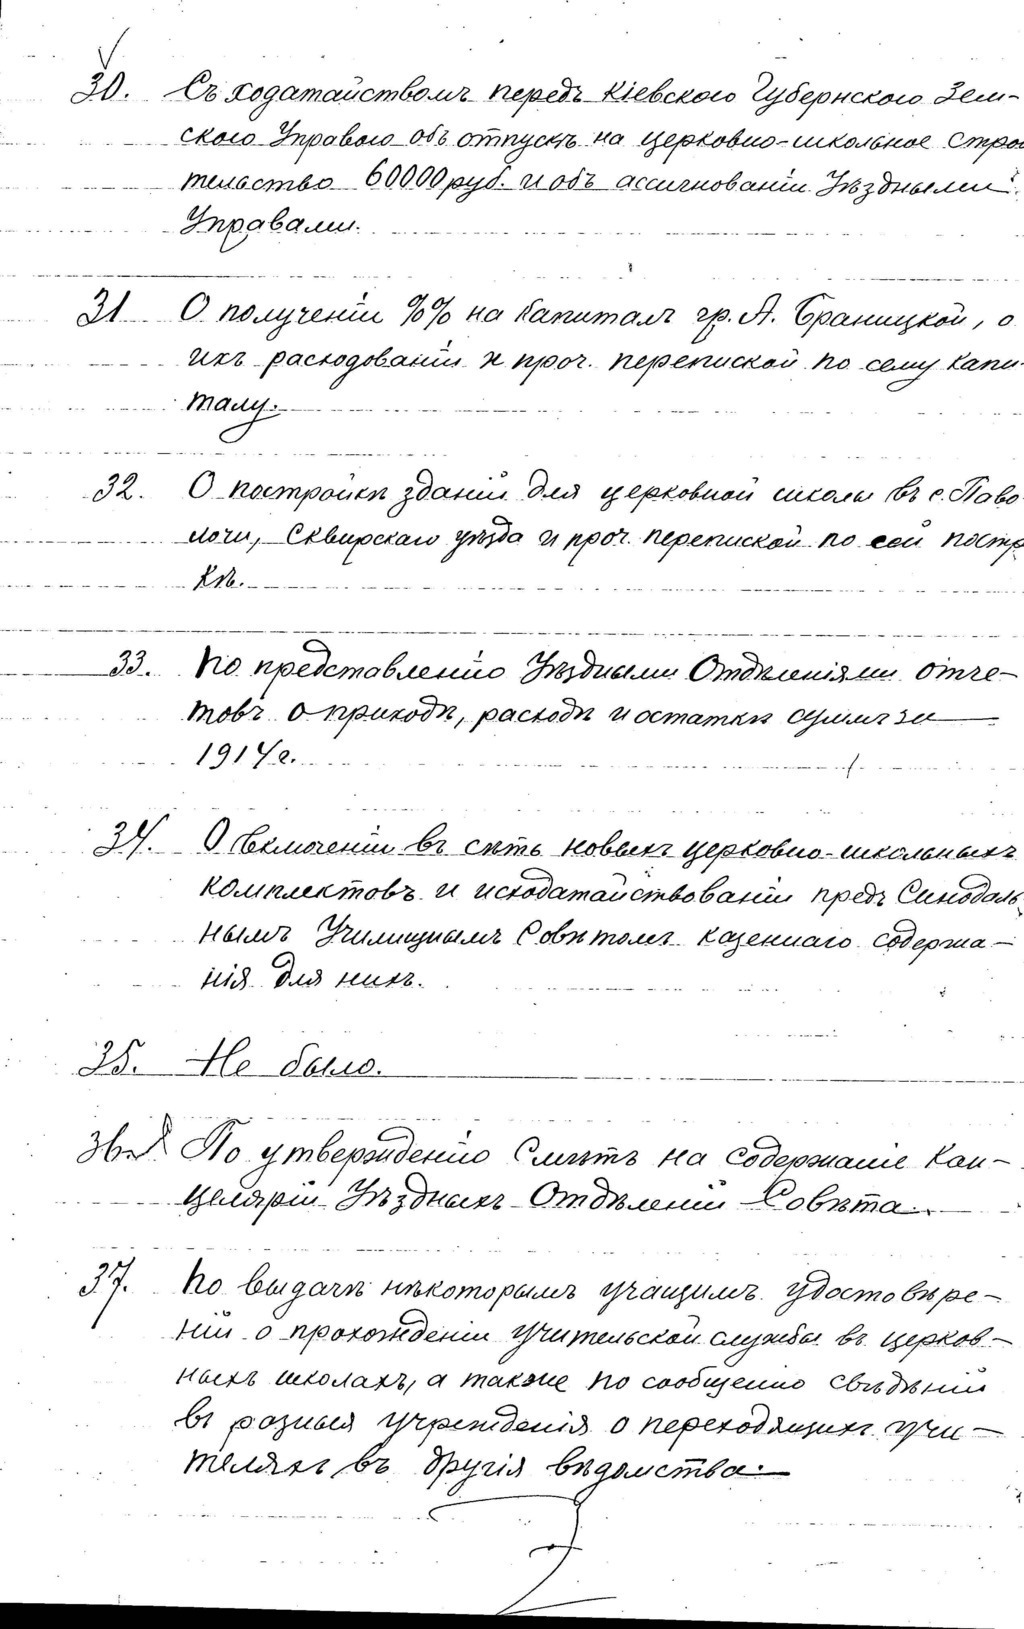 30. Съ ходатайствомъ передъ Кіевскою Губернскою Зем-
скою Управою объ отпускѣ на церковно-школьное строи
тельство 60000 руб. и объ ассигнованіи Уѣздными
Управами.
31 О полученіи %% на капиталъ гр. А. Браницкой, о
ихъ расходованіи и проч. перепиской по сему капи-
талу.
32. О постройкѣ зданій для церковной школы въ с. Паво
лочи, Сквирскаго уѣзда и проч. перепиской по сей постр
кѣ.
33. По представленію Уѣздными Отдѣленіями отче-
товъ о приходѣ, расходѣ и остаткѣ суммъ за
1914 г.
34. О включеніи въ сѣть новыхъ церковно-школьныхъ
комплектовъ и исходатайствованіи предъ Синодаль-
нымъ Училищнымъ Совѣтомъ казеннаго содержа-
нія для нихъ.
35. Не было.
36. По утвержденію Смѣтъ на содержаніе Кан-
целяріи Уѣздныхъ Отдѣленій Совѣта.
37. По выдачѣ нѣкоторымъ учащимъ удостовѣре-
ній о прохожденіи учительской службы въ церков-
ныхъ школахъ, а также по сообщенію свѣдѣній
въ разныя учрежденія о переходящихъ учи-
теляхъ въ другія вѣдомства.